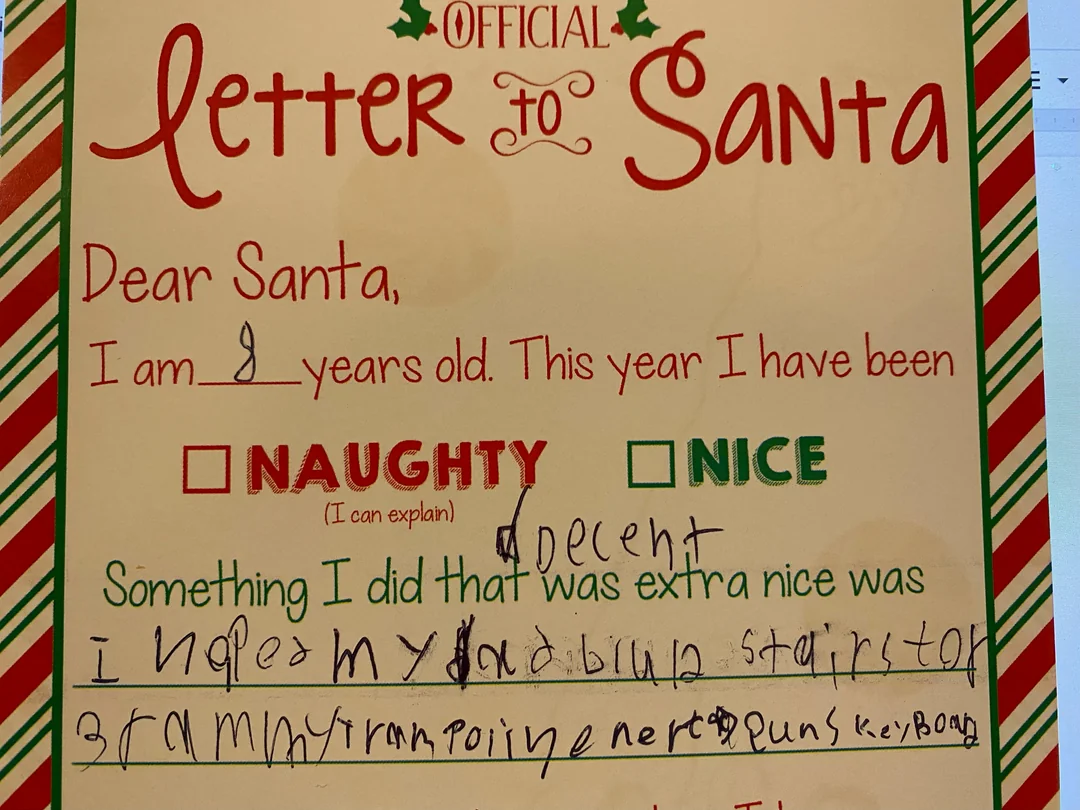 OFFICIAL
Letter to Santa
Dear Santa,
I am 8 years old. This year I have been
NAUGHTY NICE
(I can explain)
Decent
Something I did that was extra nice was
i my dad biuld stairs for
grammy trampoline nerf guns keyBoard